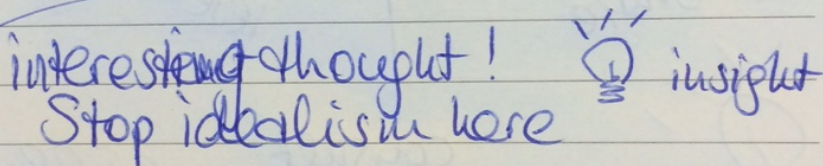 interesting thought! insight
Stop idealism here